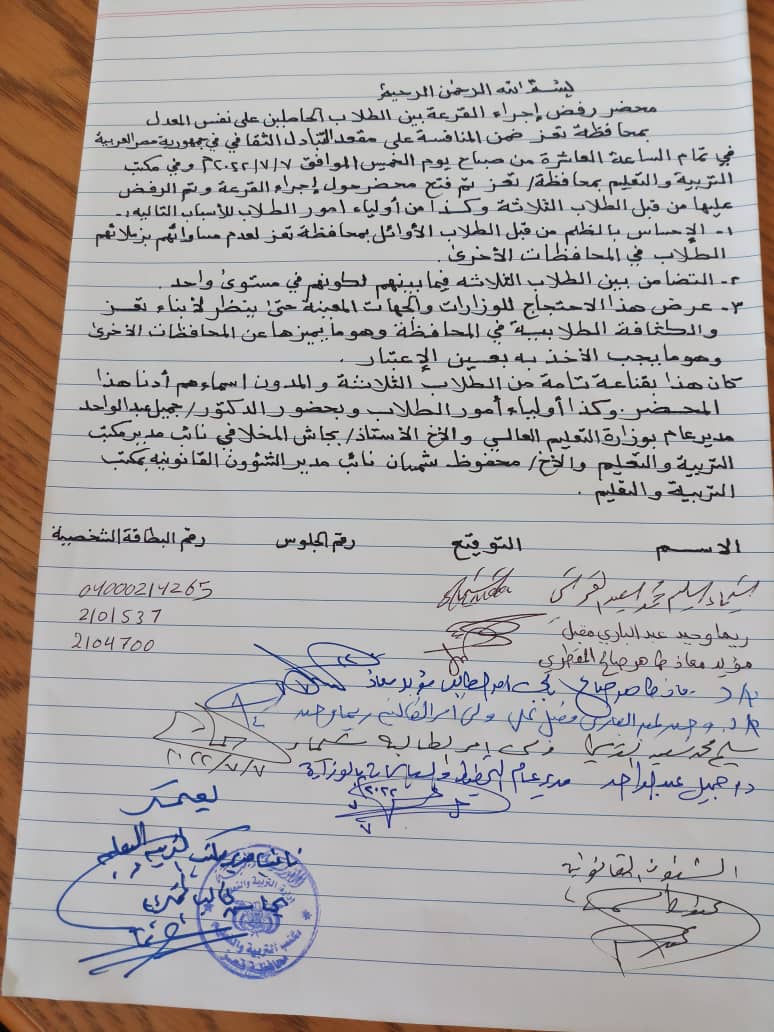 بسم الله الرحمن الرحيم
محضر رفض إجراء القرعة بين الطلاب الحاملين على نفس المعدل
بمحافظة تعز ضمن المنافسة على مقعد التبادل الثقافي في جمهورية مصر العربية
في تمام الساعة العاشرة من صباح يوم الخميس الموافق ٢٠٢٢/٧/٧م وفي مكتب
التربية والتعليم بمحافظة/ تعز تم فتح محضر حول إجراء القرعة وتم الرفض
عليها من قبل الطلاب الثلاثة وكذا من أولياء امور الطلاب للأسباب التاليه:-
١- الإحساس بالظلم من قبل الطلاب الأوائل بمحافظة تعز لعدم مساواتهم بزملائهم
الطلاب في المحافظات الأخرى.
٢- التضامن بين الطلاب الثلاثه فيما بينهم لكونهم في مستوى واحد.
٣- عرض هذا الاحتجاج للوزارات والجهات المعينة حتى ينظر لأبناء تعز
والكثافة الطلابية في المحافظة وهو ما يميزها عن المحافظات الأخرى
وهو ما يجب الأخذ به بعين الإعتبار.
كان هذا بقناعة تامة من الطلاب الثلاثة والمدون اسماءهم أدنا هذا
المحضر. وكذا أولياء أمور الطلاب وبحضور الدكتور/ جميل عبدالواحد
مدير عام بوزارة التعليم العالي والاخ الاستاذ/ بجاش المخلافي نائب مدير مكتب
التربية والتعليم والاخ/ محفوظ شمسان نائب مدير الشؤون القانونيه بمكتب
التربية والتعليم.
الاسم التوقيع رقم الجلوس رقم البطاقة الشخصية
شيماء سليم محمد سعيد 04000214265
ريما وحيد عبدالباري مقبل 2101537
مؤيد معاذ طاهر صالح المقطري 2104700
معاذ طاهر صالح مؤيد معاذ
ولي أمر الطالبة ريما وحيد
سليم محمد سعيد ولي امر الطالبة شيماء
٢٠٢٢/٧/٧
د/ جميل عبدالواحد مدير عام التخطيط والسياسات بالوزارة
يعتمد
نائب مدير مكتب التربية والتعليم
الشؤون القانونية
وزارة التربية والتعليم
مكتب التربية والتعليم
محافظة تعز